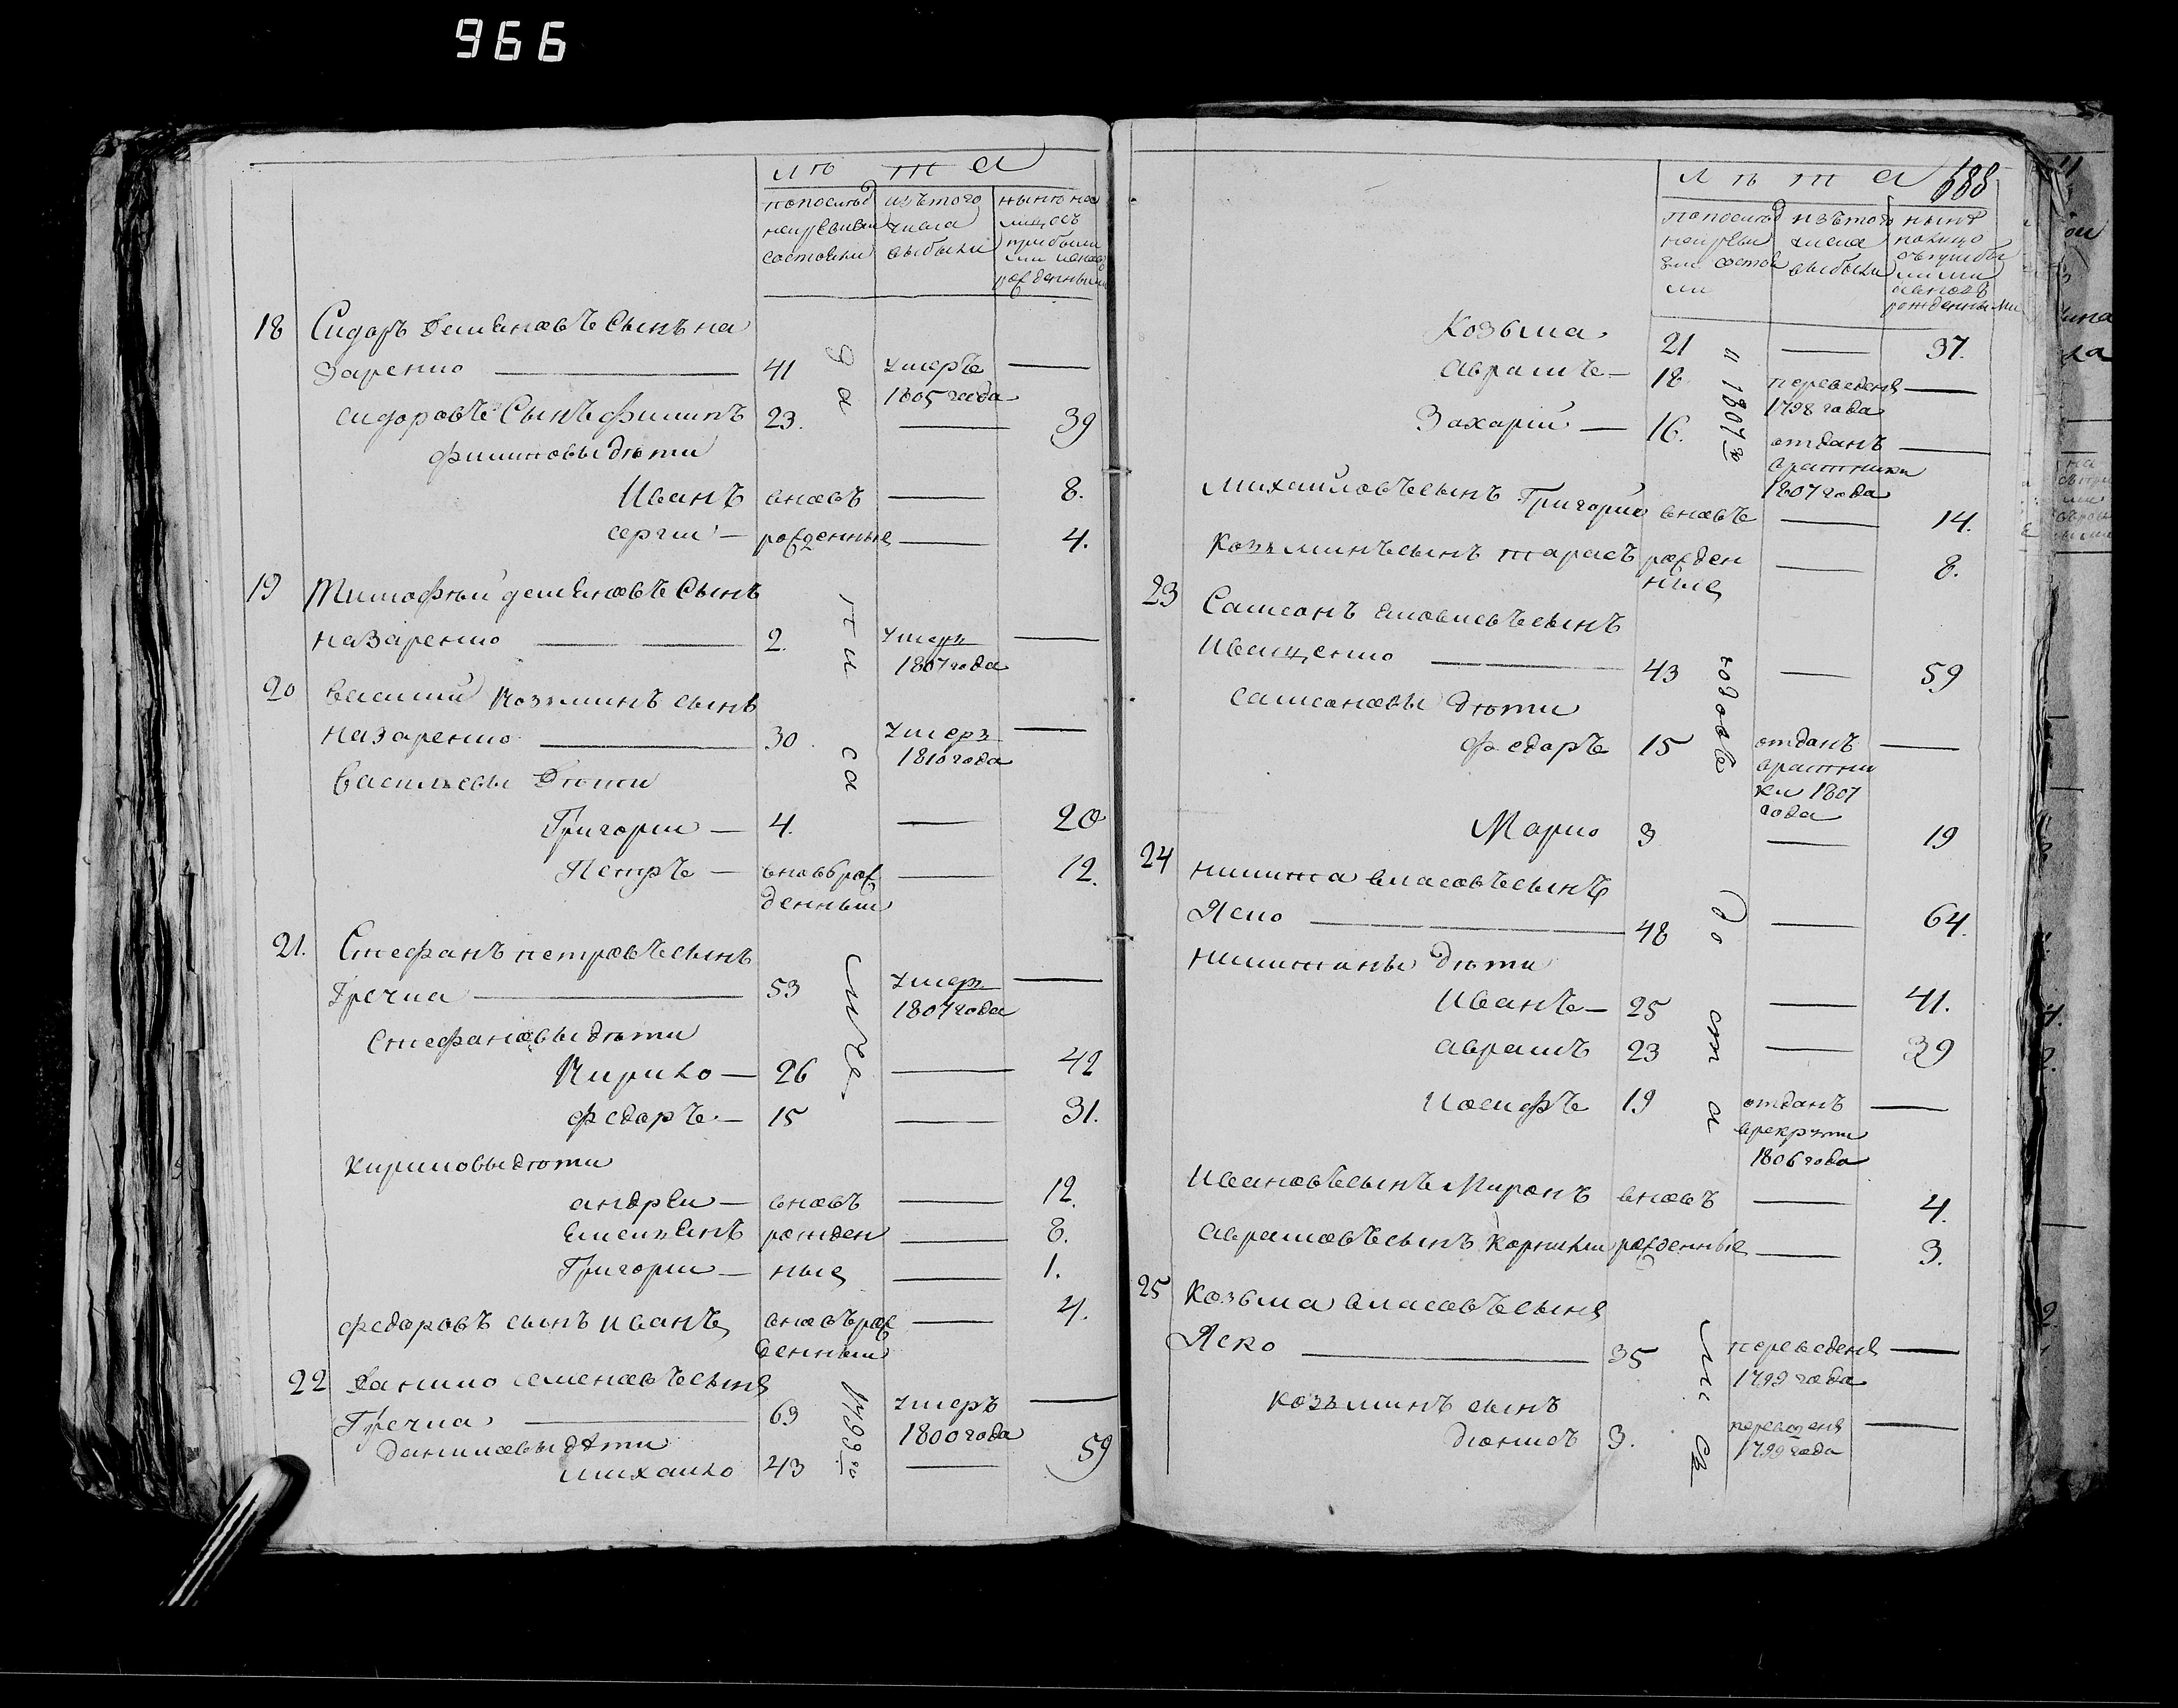 966
лѣта
по последней ревизии состояли
изъ того числа выбыли
ныне на лицо съ прибылыми и вновь рожденными
18 Сидоръ Демяновъ Сынъ На
Заренко 41 умеръ
1805 года
Сидоровъ Сынъ Филипъ 23. 39
Филиповы дѣти
Иванъ вновь 8.
Сергии рожденные 4.
19 Тимофѣй Демяновъ Сынъ
Назаренко 2. умеръ
1807 года
20 Василий Козминъ сынъ
Назаренко 30 умеръ
1810 года
Васильевы Дѣти
Григории 4. 20
Петръ вновь рож 12.
денный
21. Стефанъ петровъ сынъ
Гречка 53 умеръ
1807 года
Стефановы дѣти
Кирило 26 42
Федоръ 15 31.
Кириловы дѣти
андреи вновь 12.
Емельянъ рожден 8.
Григории ные 1.
Федоровъ сынъ иванъ вновь рож 4.
денный
22 Данило семеновъ сынъ
Гречка 69 умеръ
1800 года
Даниловы дѣти
михаило 43 59
лѣта 688
по последней ревизии состояли
изъ того числа выбыли
ныне на лицо съ прибылыми и вновь рожденными
Козьма 21 37.
аврамъ 18 переведенъ
1798 года
Захарий 16. отданъ
в ратники
1807 года
михайловъ сынъ Григорий вновь 14.
Козминъ сынъ тарасъ рожден 8.
ные
23 Самсонъ сынъ
Иващенко 43 59
самсоновы дѣти
Федоръ 15 отданъ
в ратни
ки 1807
года
Марко 3 19
24 никита власовъ сынъ
Яско 48 64.
никитины дѣти
Иванъ 25 41.
аврамъ 23 39
иосифъ 19 отданъ
в рекруты
1806 года
Ивановъ сынъ Миронъ вновь 4.
аврамовъ сынъ Корнилии рожденные 3.
25 Козьма власовъ сынъ
Яско 35 переведенъ
1799 года
козьминъ сынъ
3. переведенъ
1799 года